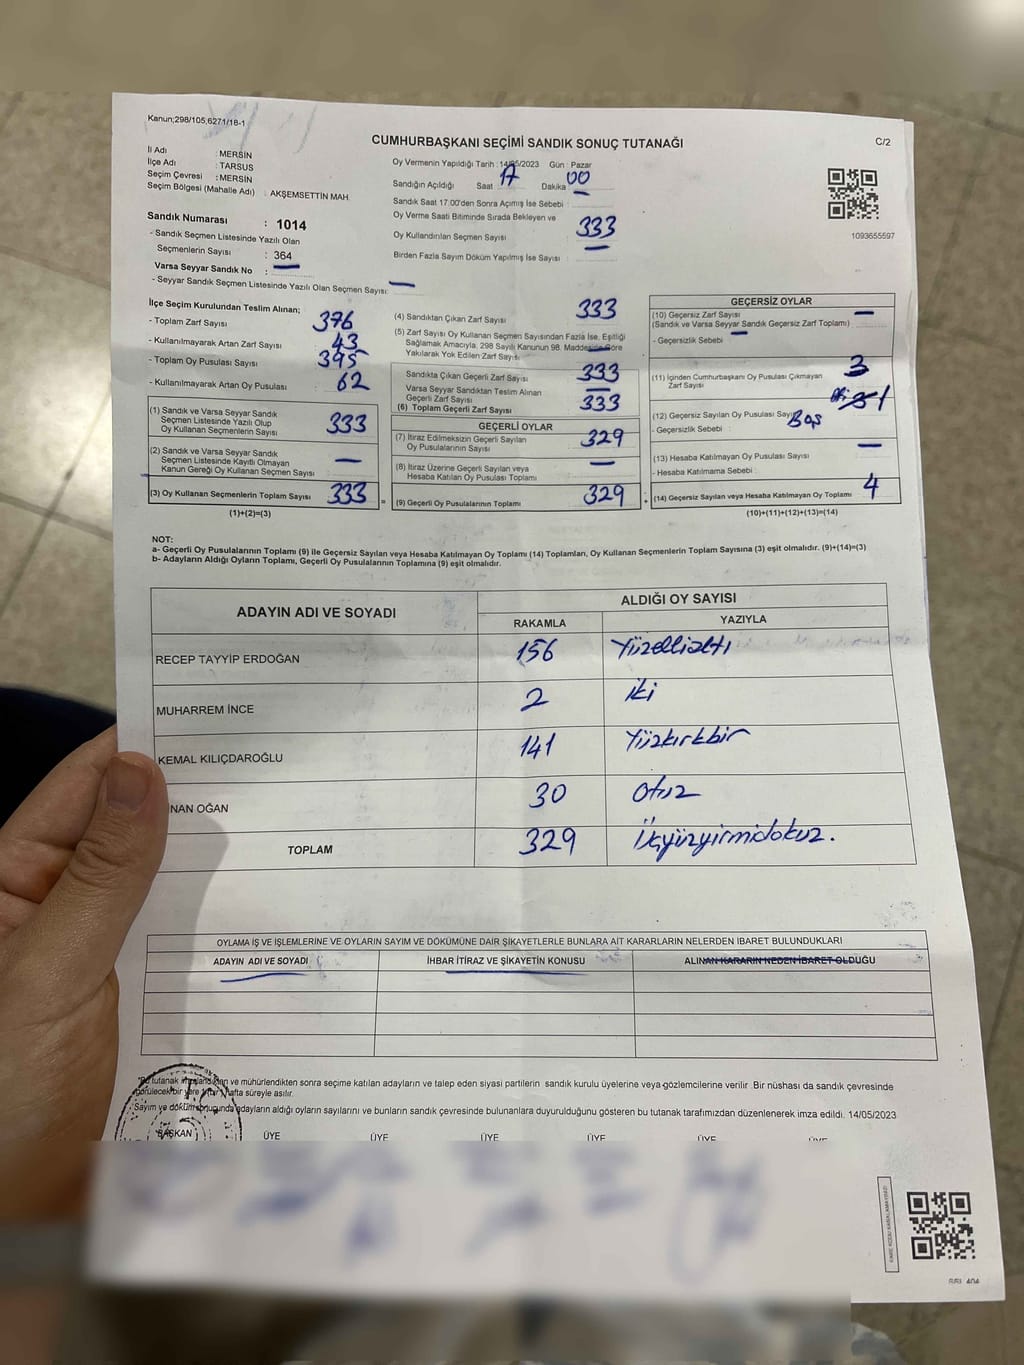 Kanun;298/105,6271/18-1
CUMHURBAŞKANI SEÇİMİ SANDIK SONUÇ TUTANAĞI
C/2
İl Adı : MERSİN
İlçe Adı : TARSUS
Seçim Çevresi : MERSİN
Seçim Bölgesi (Mahalle Adı) : AKŞEMSETTİN MAH.
Oy Vermenin Yapıldığı Tarih : 14/05/2023 Gün : Pazar
Sandığın Açıldığı Saat 17 Dakika 00
Sandık Saat 17:00'den Sonra Açımış İse Sebebi :
Oy Verme Saati Bitiminde Sırada Bekleyen ve
Oy Kullandırılan Seçmen Sayısı : 333
Birden Fazla Sayım Döküm Yapılmış İse Sayısı :
1093655597
Sandık Numarası : 1014
- Sandık Seçmen Listesinde Yazılı Olan
Seçmenlerin Sayısı : 364
Varsa Seyyar Sandık No :
- Seyyar Sandık Seçmen Listesinde Yazılı Olan Seçmen Sayısı: —
İlçe Seçim Kurulundan Teslim Alınan;
- Toplam Zarf Sayısı 376
- Kullanılmayarak Artan Zarf Sayısı 43
- Toplam Oy Pusulası Sayısı 395
- Kullanılmayarak Artan Oy Pusulası 62
(1) Sandık ve Varsa Seyyar Sandık
Seçmen Listesinde Yazılı Olup
Oy Kullanan Seçmenlerin Sayısı 333
(2) Sandık ve Varsa Seyyar Sandık
Seçmen Listesinde Kayıtlı Olmayan
Kanun Gereği Oy Kullanan Seçmen Sayısı —
(3) Oy Kullanan Seçmenlerin Toplam Sayısı 333 =
(1)+(2)=(3)
(4) Sandıktan Çıkan Zarf Sayısı 333
(5) Zarf Sayısı Oy Kullanan Seçmen Sayısından Fazla İse, Eşitliği
Sağlamak Amacıyla, 298 Sayılı Kanunun 98. Maddesine Göre
Yakılarak Yok Edilen Zarf Sayısı
Sandıkta Çıkan Geçerli Zarf Sayısı 333
Varsa Seyyar Sandıktan Teslim Alınan
Geçerli Zarf Sayısı
(6) Toplam Geçerli Zarf Sayısı 333
GEÇERLİ OYLAR
(7) İtiraz Edilmeksizin Geçerli Sayılan
Oy Pusulalarının Sayısı 329
(8) İtiraz Üzerine Geçerli Sayılan veya
Hesaba Katılan Oy Pusulası Toplamı —
(9) Geçerli Oy Pusulalarının Toplamı 329 +
GEÇERSİZ OYLAR
(10) Geçersiz Zarf Sayısı —
(Sandık ve Varsa Seyyar Sandık Geçersiz Zarf Toplamı)
- Geçersizlik Sebebi : —
(11) İçinden Cumhurbaşkanı Oy Pusulası Çıkmayan
Zarf Sayısı 3
(12) Geçersiz Sayılan Oy Pusulası Sayısı 1
- Geçersizlik Sebebi : Boş
(13) Hesaba Katılmayan Oy Pusulası Sayısı —
- Hesaba Katılmama Sebebi :
(14) Geçersiz Sayılan veya Hesaba Katılmayan Oy Toplamı 4
(10)+(11)+(12)+(13)=(14)
NOT:
a- Geçerli Oy Pusulalarının Toplamı (9) ile Geçersiz Sayılan veya Hesaba Katılmayan Oy Toplamı (14) Toplamları, Oy Kullanan Seçmenlerin Toplam Sayısına (3) eşit olmalıdır. (9)+(14)=(3)
b- Adayların Aldığı Oyların Toplamı, Geçerli Oy Pusulalarının Toplamına (9) eşit olmalıdır.
ADAYIN ADI VE SOYADI
ALDIĞI OY SAYISI
RAKAMLA YAZIYLA
RECEP TAYYİP ERDOĞAN 156 Yüzelliantı
MUHARREM İNCE 2 iki
KEMAL KILIÇDAROĞLU 141 Yüzkırkbir
NAN OĞAN 30 otuz
TOPLAM 329 Üçyüzyirmidokuz.
OYLAMA İŞ VE İŞLEMLERİNE VE OYLARIN SAYIM VE DÖKÜMÜNE DAİR ŞİKAYETLERLE BUNLARA AİT KARARLARIN NELERDEN İBARET BULUNDUKLARI
ADAYIN ADI VE SOYADI İHBAR İTİRAZ VE ŞİKAYETİN KONUSU ALINAN KARARIN NEDEN İBARET OLDUĞU
ve mühürlendikten sonra seçime katılan adayların ve talep eden siyasi partilerin sandık kurulu üyelerine veya gözlemcilerine verilir. Bir nüshası da sandık çevresinde
görülecek bir yere hafta süreyle asılır.
Sayım ve döküm sonucunda adayların aldığı oyların sayılarını ve bunların sandık çevresinde bulunanlara duyurulduğunu gösteren bu tutanak tarafımızdan düzenlenerek imza edildi. 14/05/2023
BAŞKAN ÜYE ÜYE ÜYE ÜYE ÜYE ÜYE